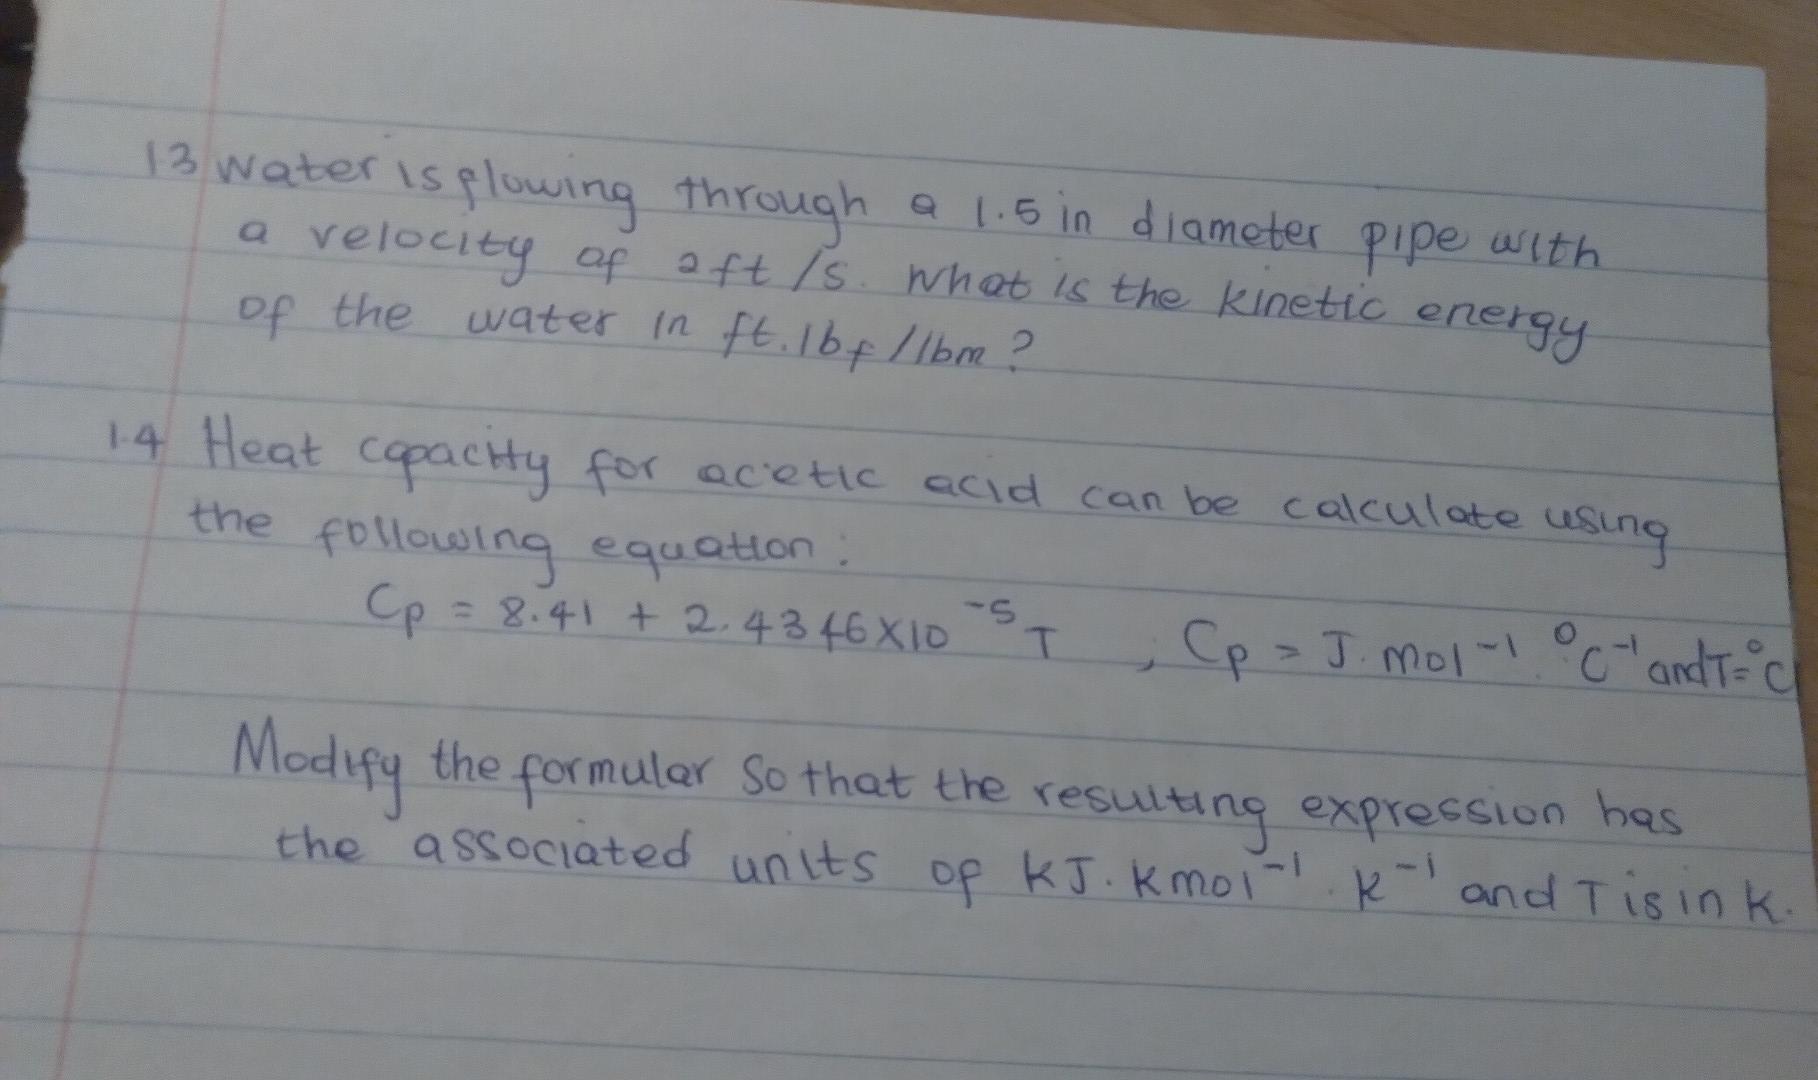 13 Water is flowing through a 1.5 in diameter pipe with
a velocity of 2 ft/s. What is the kinetic energy
of the water in ft.lbf/lbm?
1.4 Heat capacity for acetic acid can be calculate using
the following equation:
Cp = 8.41 + 2.4346 x 10⁻⁵ T , Cp = J. mol⁻¹. °C⁻¹ and T = °C
Modify the formular so that the resulting expression has
the associated units of kJ. kmol⁻¹. K⁻¹ and T is in K.